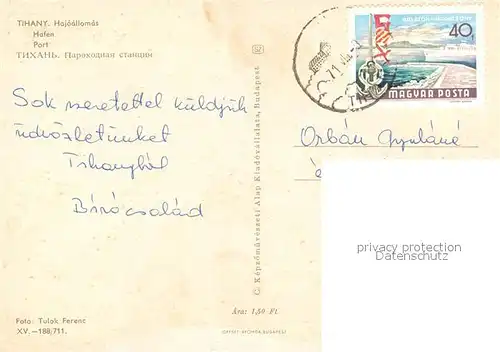 TIHANY. Hajóállomás
Hafen
Port
ТИХАНЬ. Пароходная станция
40
MAGYAR POSTA
Sok szeretettel küldjük
üdvözletünket
Tihanyból
Bíró család
Orbán Gyuláné
é
C. Képzőművészeti Alap Kiadóvállalata, Budapest
privacy protection
Ára: 1,50 Ft
Foto: Tulok Ferenc
XV.—188/711.